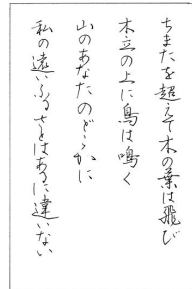 ちまたを超えて木の葉は飛び
木立の上に鳥は鳴く
山のあなたのどこかに
私の遠いふるさとはあるに違いない